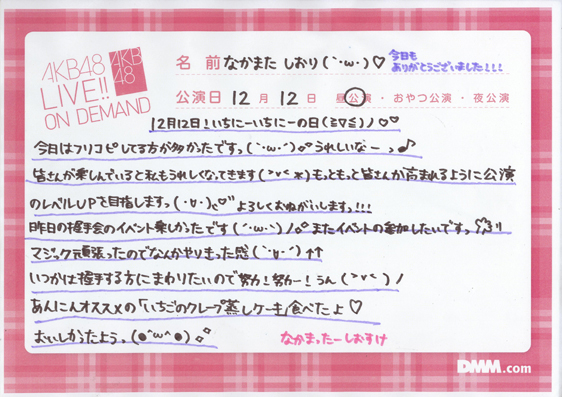 AKB48
LIVE!!
ON DEMAND
AKB
48
名前 なかまた しおり(`･ω･´)♡
今日も
ありがとうございました!!!
公演日 12月12日 昼公演・おやつ公演・夜公演
12月12日!いちにーいちにーの日(≧▽≦)ノ♡♡
今日はフリコピしてる方が多かたですっ(`･ω･´)♪うれしいなーっ♪
皆さんが楽しんでいると私もうれしくなってきます(>v<*)もっともっと皆さんが高まれるように公演
のレベルUPを目指しますっ(･∀･)よろしくおねがいします!!!
昨日の握手会のイベント楽しかたです(`･ω･´)ノまたイベントの参加したいですっ
マジック頑張ったのでなんかやりきった感(`･∀･´)↑↑
いつかは握手する方にまわりたいので努力!努力ー!うん(>v<)ノ
あんにんオススメの「いちごのクレープ蒸しケーキ」食べたよ♡
おいしかたようっ(●^ω^●)
なかまったーしおすけ
DMM.com